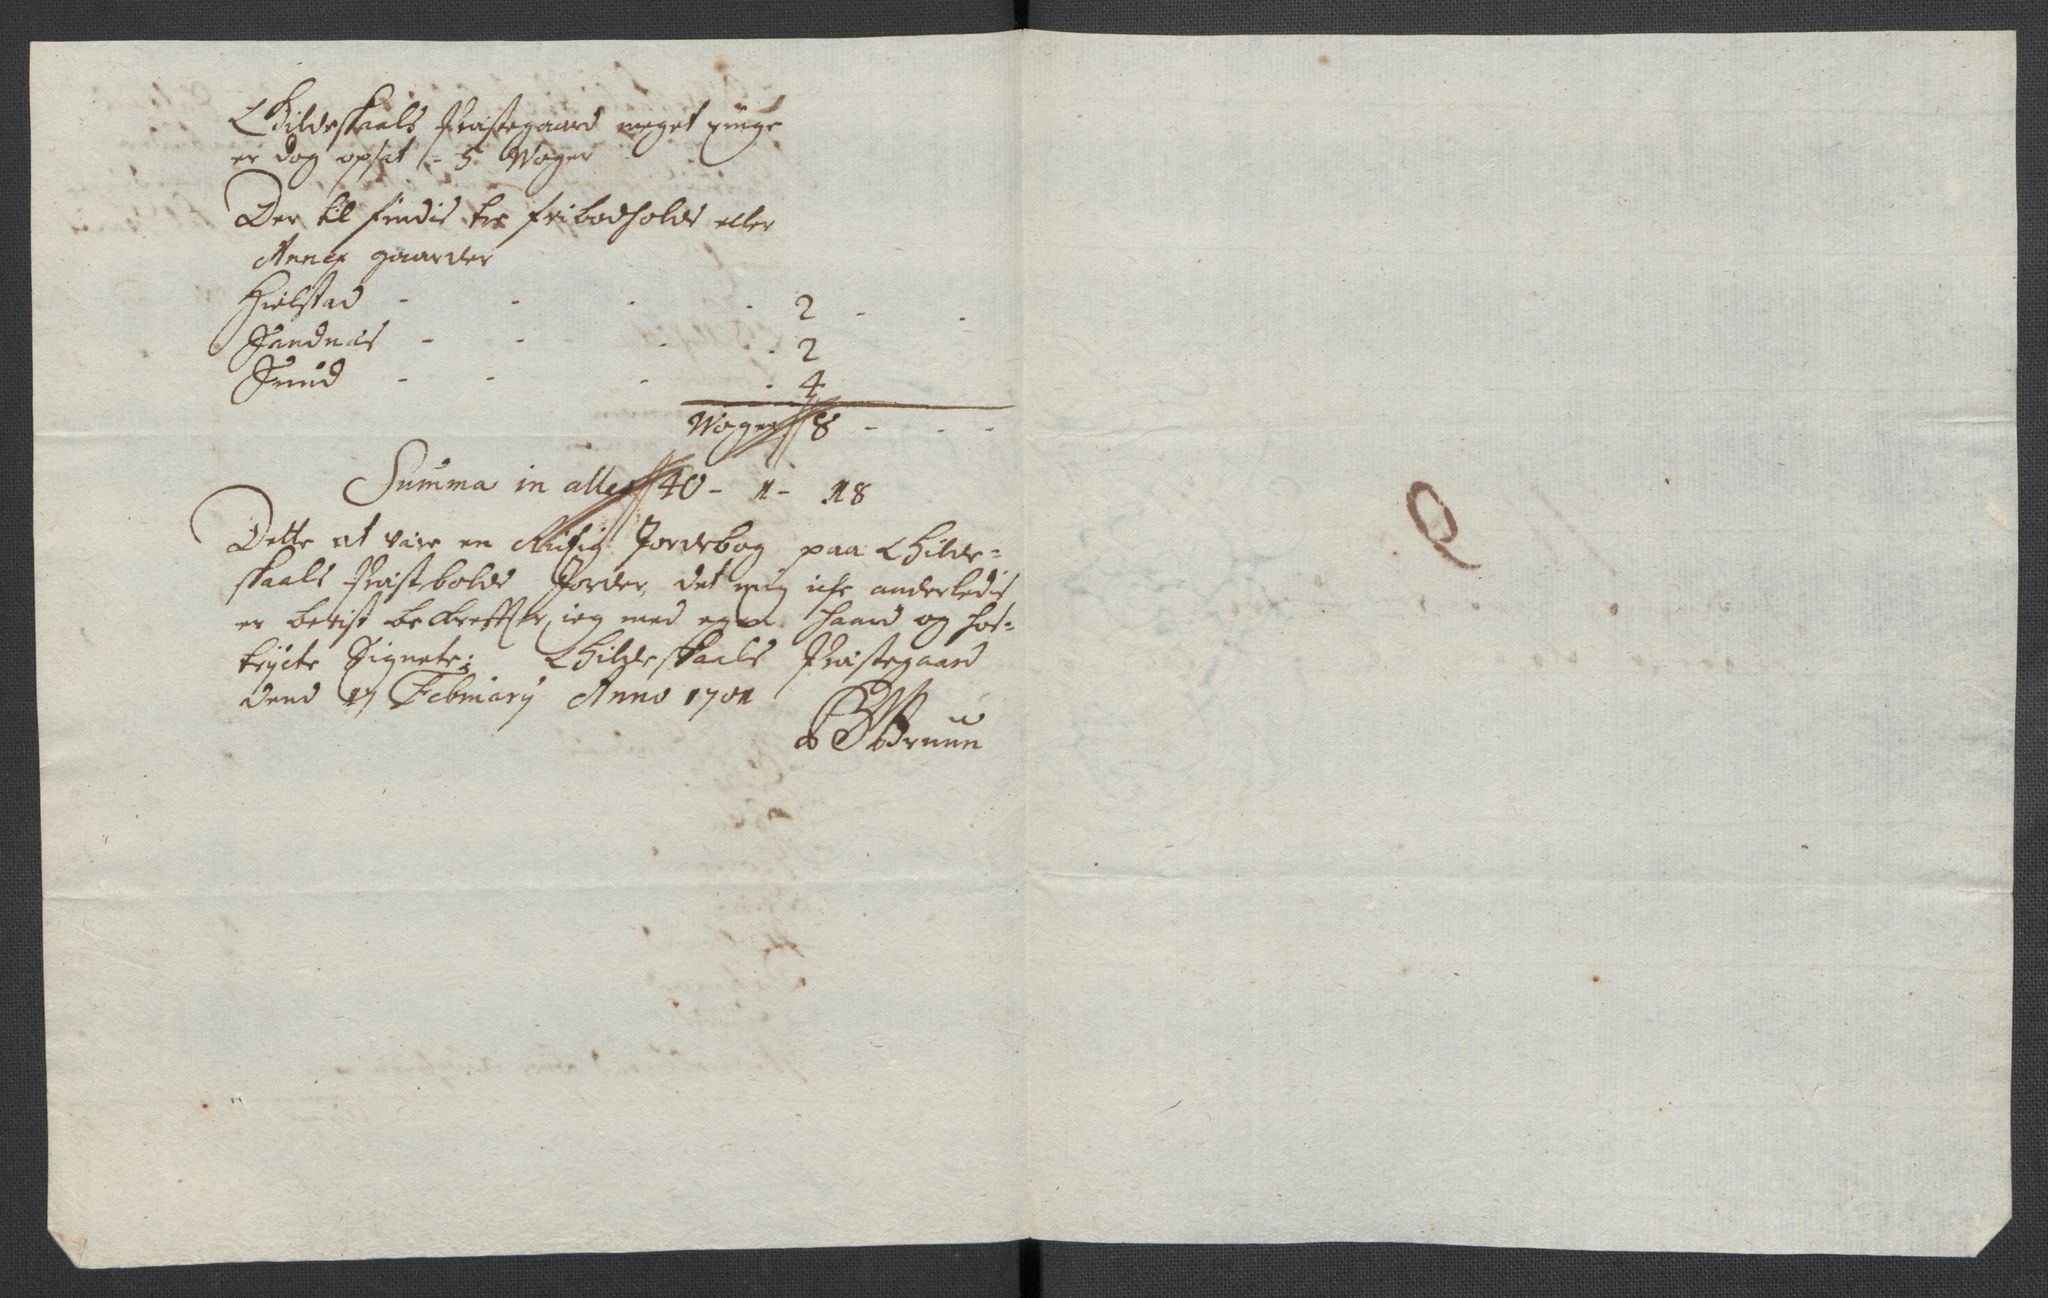 Gildeskaals Præstegaard meget ringe
er dog opsat = 5 Woger
Der til findis tre fribodholds eller
Annex gaarder
Hielstad - - - - 2 - -
Sandnæs - - - - 2
Sund - - - - 4
Woger 8 - - -
Summa in alles 40 - 1 - 18
Dette at være en Rictig Jordebog paa Gilde=
skaals Præstebolds Jorder, det mig iche anderledis
er bevist becreffter ieg med egen haand og hos=
tryckte Signete; Gildeskaals Præstegaard
Dend 17 Februarij Anno 1701
Bruun
9